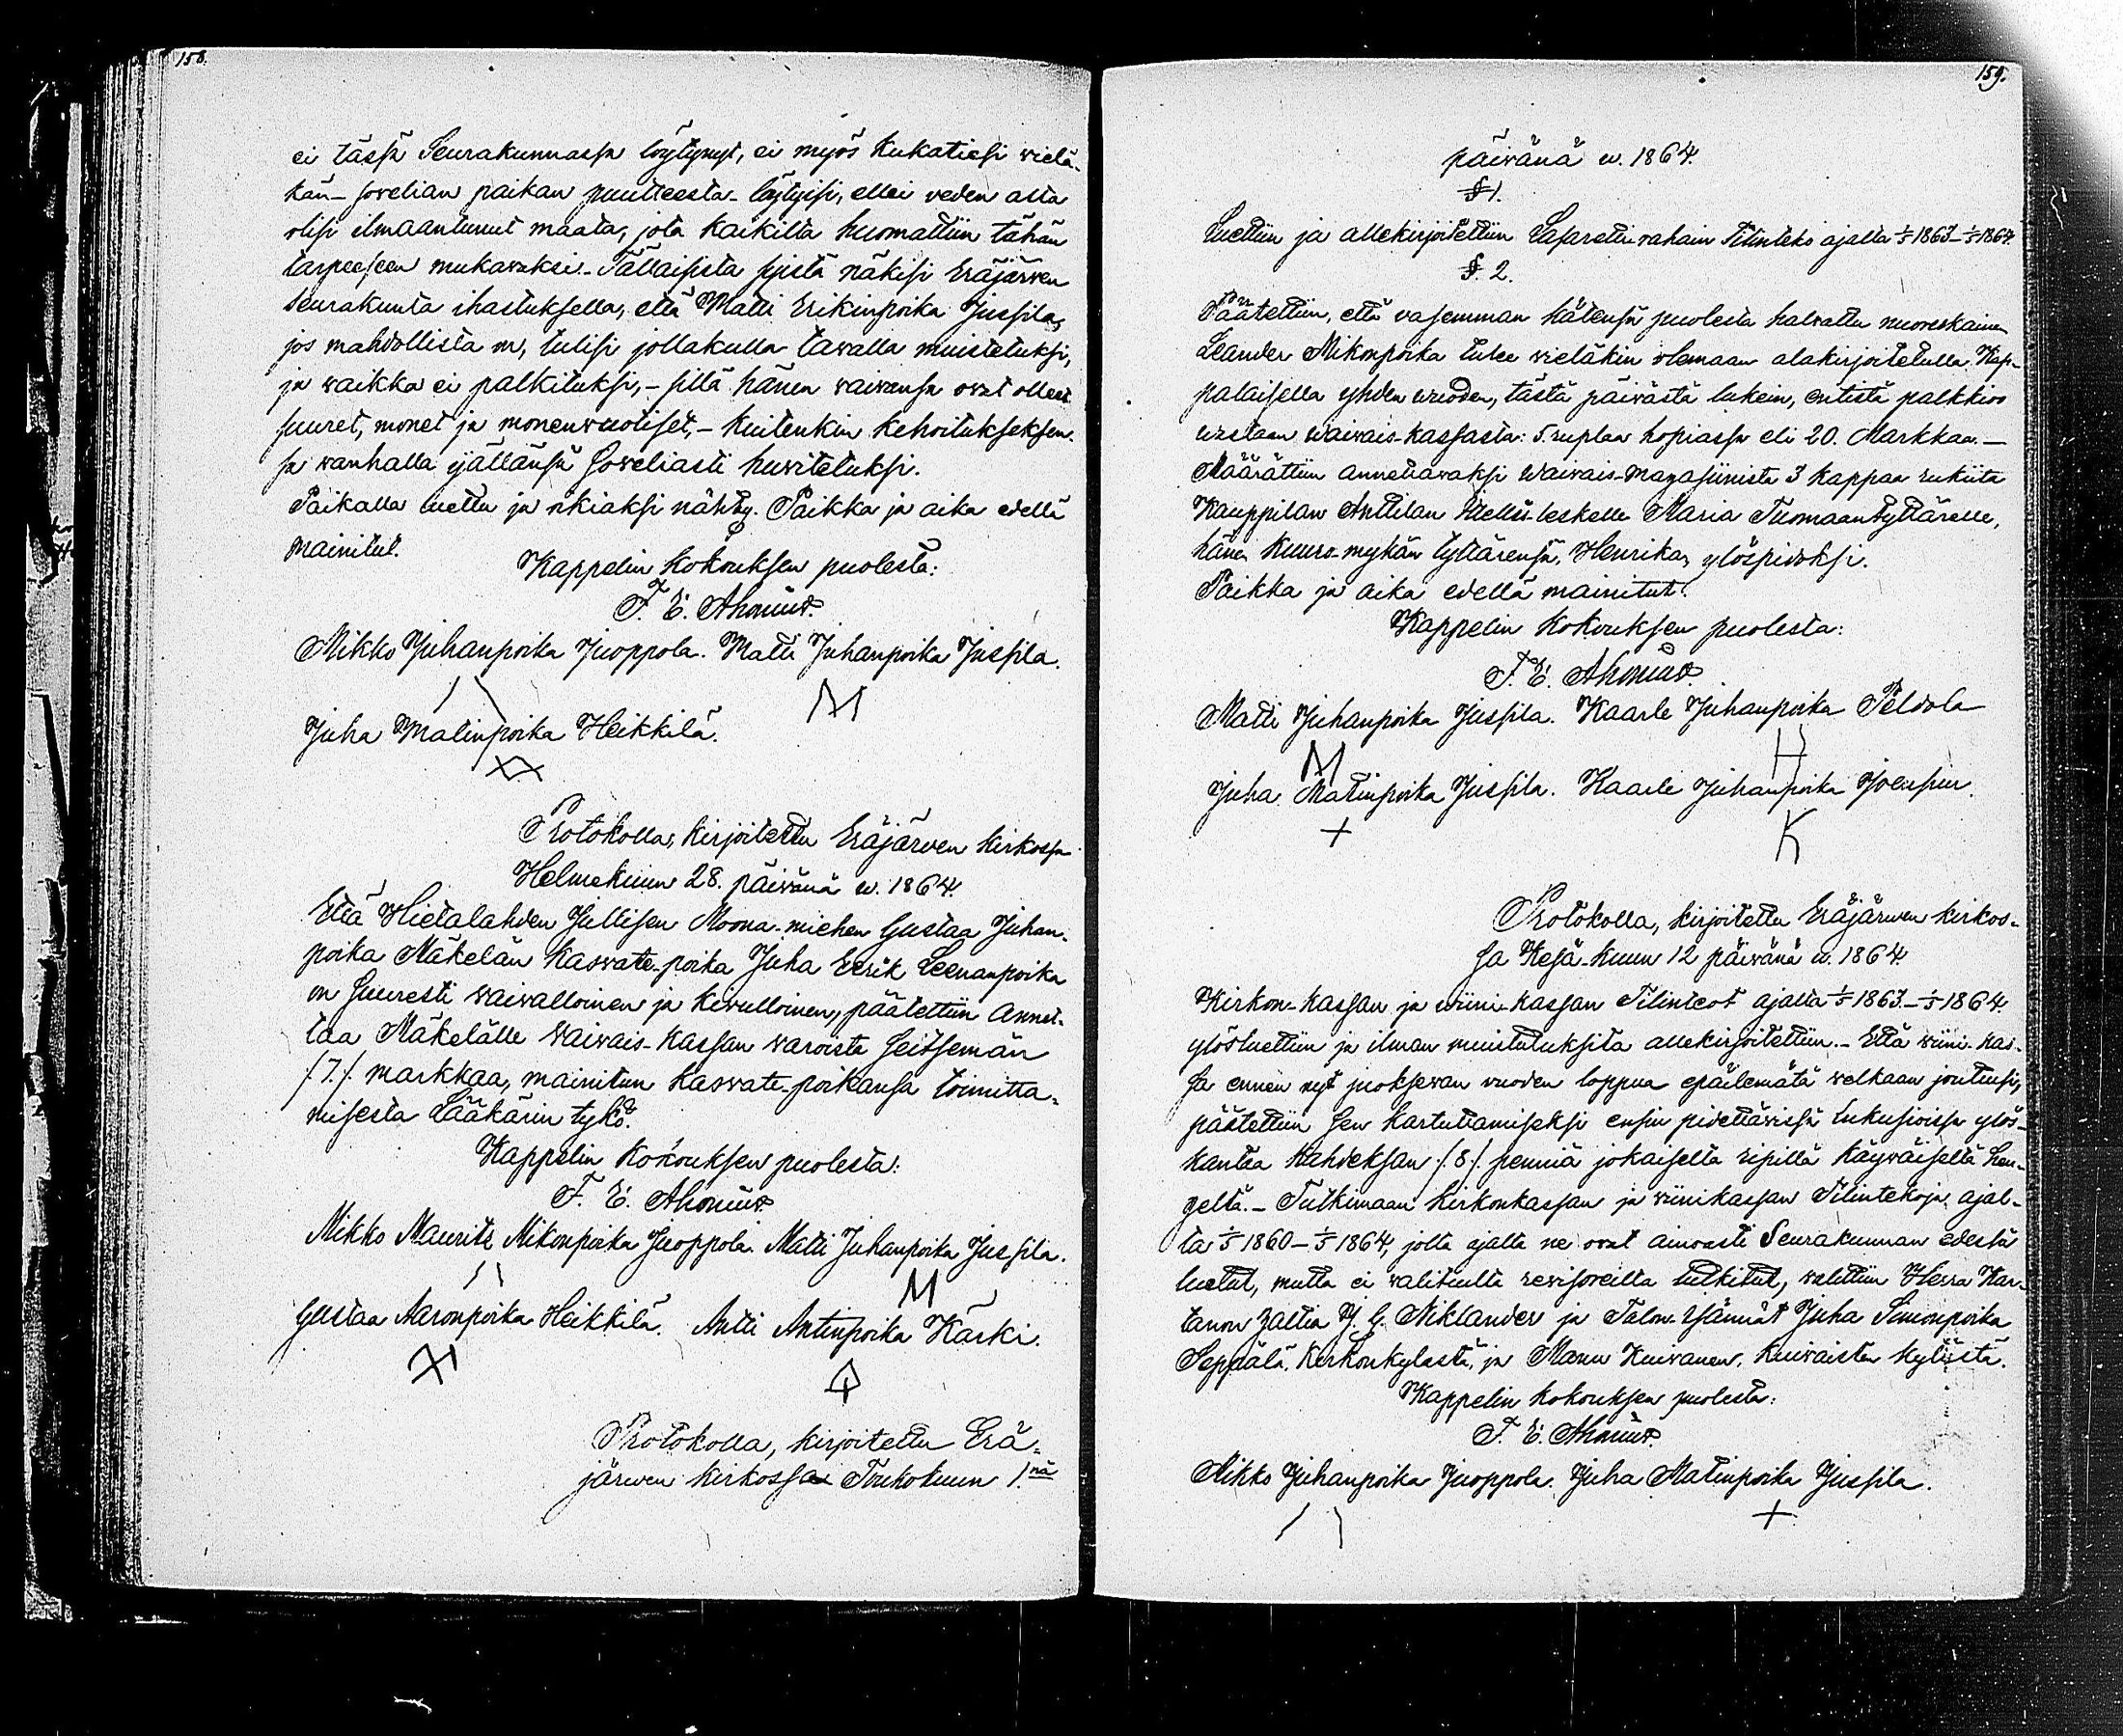 158.
ei tässä Seurakunnassa löytynyt, ei myös kukatiesi wielä-
kän - sovelian paikan puutteesta - löytyisi, ellei veden alta
olisi ilmaantunut maata, jota kaikilta huomattiin tähän
tarpeeseen mukavaksi. - Tällaisista syistä näkisi Eräjärven
seurakunta ihastuksella, että Matti Erikinpoika Jussila,
jos mahdollista on, tulisi jollakulla tavalla muistetuksi,
ja waikka ei palkituksi, - sillä hänen waivansa ovat olleet
suuret, monet ja monenvuotiset, - kuitenkin kehoitukseksen-
sa wanhalla ijällänsä soveliasti huvitetuksi.
Paikalla luettu ja oikiaksi nähty. Paikka ja aika edellä
mainitut.
Kappelin kokouksen puolesta:
F. E. Ahonius.
Mikko Juhanpoika Juoppola. Matti Juhanpoika Jussila.
Juha Matinpoika Heikkilä.
Protokolla, kirjoitettu Eräjärven kirkossa
Helmekuun 28. päivänä w. 1864.
Että Hietalahden Jullisen Moona-miehen Gustaa Juhan-
poika Mäkelän kasvate-poika Juha Eerik Leenanpoika
on suuresti waivalloinen ja kivulloinen, päätettiin annet-
taa Mäkelälle Waivais-kassan waroista seitsemän
/:7:/ markkaa, mainitun kasvate-poikansa toimitta-
misesta Lääkärin tykö.
Kappelin kokouksen puolesta:
F. E. Ahonius.
Mikko Maurits Mikonpoika Juoppola. Matti Juhanpoika Jussila.
M
Gustaa Aaronpoika Heikkilä. Antti Antinpoika Kärki.
Protokolla, kirjoitettu Erä-
järwen kirkossa Toukokuun 1.nä
159.
päivänä w. 1864.
§ 1.
Luettiin ja allekirjoitettiin Lasaretti-rahain Tilinteko ajalta 1/5 1863 - 1/5 1864.
§. 2.
Päätettiin, että vasemman kätensä puolesta halvattu nuorukainen
Leander Mikonpoika tulee vieläkin olemaan alakirjoitetulla Kap-
palaisella yhden wuoden, tästä päivästä lukein, entistä palkkioo
wastaan Waivais-kassasta: 5. ruplaa hopiassa eli 20. Markkaa. -
Määrättiin annettavaksi Waivais-magasiinista 3 kappaa rukiita
Kauppilan Anttilan Itellis-leskelle Maria Tuomaantyttärelle,
hänen kuuro-mykän tyttärensä, Henrikan, ylöspidoksi.
Paikka ja aika edellä mainitut.
Kappelin kokouksen puolesta:
F. E. Ahonius.
Matti Juhanpoika Jussila. Kaarle Juhanpoika Peldola
M
Juha Matinpoika Jussila. Kaarle Juhanpoika
+ K
Protokolla, kirjoitettu Eräjärwen kirkos-
sa Kesä-kuun 12 päivänä w. 1864.
Kirkon-kassan ja wiini-kassan Tilinteot ajalta 1/5 1863 - 1/5 1864
ylösluettiin ja ilman muistutuksita allekirjoitettiin. - Että wiini-kas-
sa ennen nyt juoksevan vuoden loppua epäilemätä welkaan joutuisi,
päätettiin sen kartuttamiseksi ensin pidettävissä Lukusioissa ylös-
kantaa kahdeksan /:8:/ penniä jokaiselta ripillä käyväiseltä hen-
geltä. - Tutkimaan kirkonkassan ja wiinikassan Tilintekoja ajal-
ta 1/5 1860 - 1/5 1864, jolta ajalta ne ovat ainoasti Seurakunnan edessä
luetut, mutta ei walituilta revisoreilta tutkitut, walittiin Herra Kar-
tanon haltia J. G. Niklander ja Talon-Isännät Juha Simonpoika
Seppälä, kirkonkylästä, ja Manu Kuivanen, Kuivaisten kylästä.
Kappelin kokouksen puolesta:
F. E. Ahonius.
Mikko Juhanpoika Juoppola. Juha Matinpoika Jussila.
+